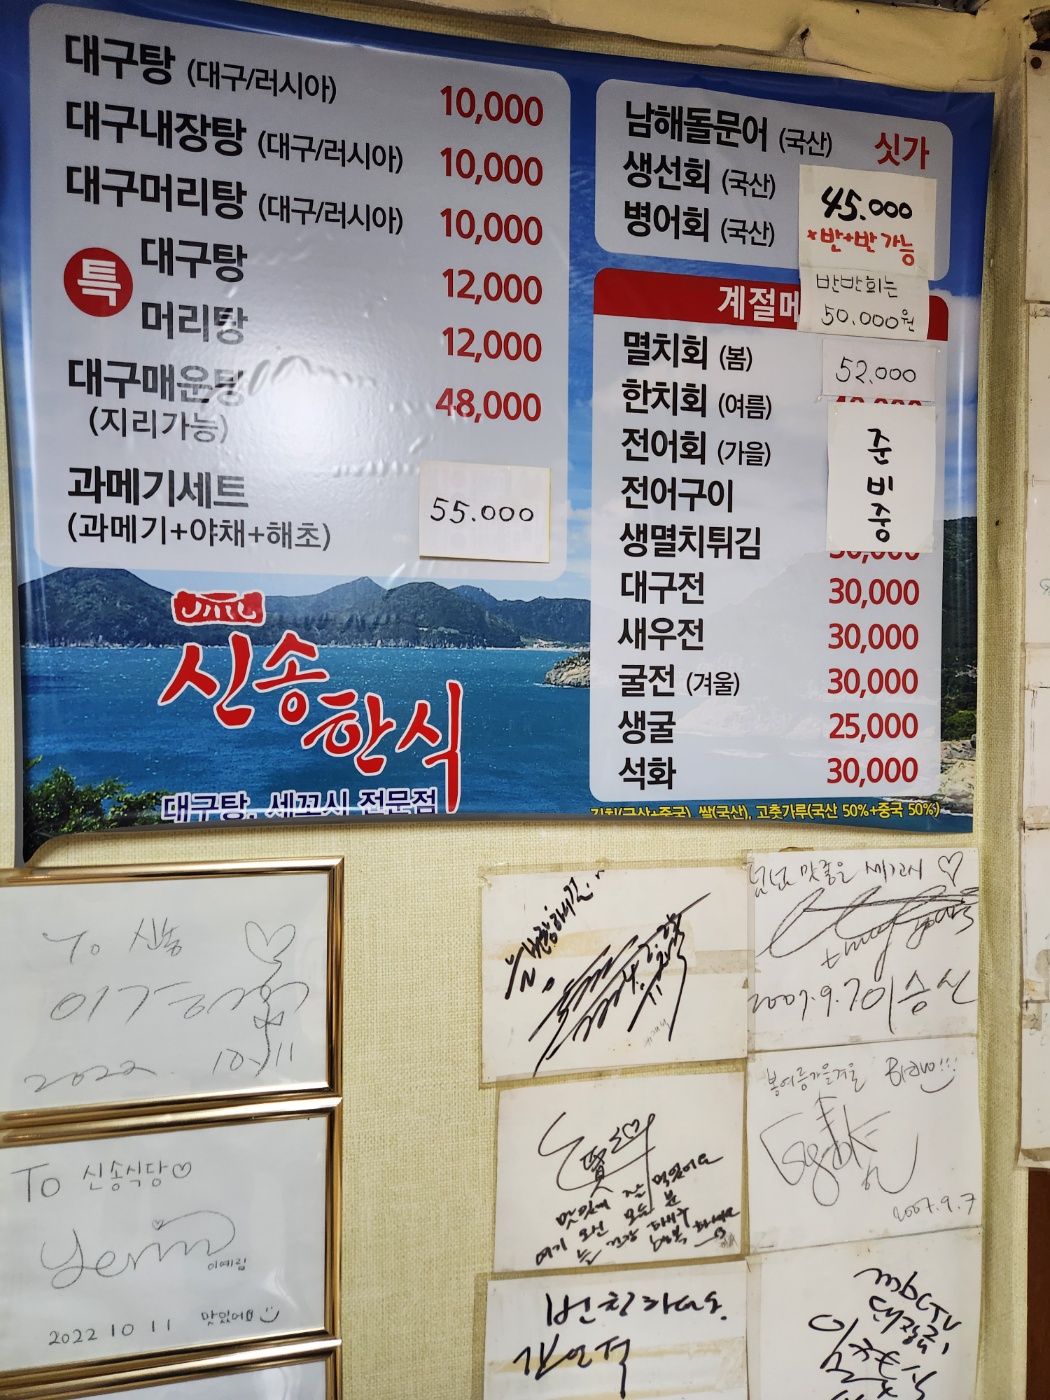 대구탕 (대구/러시아) 10,000
대구내장탕 (대구/러시아) 10,000
대구머리탕 (대구/러시아) 10,000
특
대구탕 12,000
머리탕 12,000
대구매운탕 48,000
(지리가능)
과메기세트 55.000
(과메기+야채+해초)
신송한식
대구탕, 세꼬시 전문점
남해돌문어 (국산) 싯가
생선회 (국산)
병어회 (국산)
45.000
*반+반 가능
반반회는
50.000원
계절메
멸치회 (봄) 52.000
한치회 (여름)
전어회 (가을)
전어구이
생멸치튀김
준
비
중
대구전 30,000
새우전 30,000
굴전 (겨울) 30,000
생굴 25,000
석화 30,000
김치(국산+중국) 쌀(국산), 고춧가루(국산 50%+중국 50%)
To 신송
2022. 10.11
To 신송식당♡
Yerim
이예림
2022 10 11 맛있어요
넘넘 맛좋은 세꼬시 ♡
2007.9.7 이승신
봄여름가을겨울 Bravo!!!
2007.9.7
맛있게 잘 먹었어요
여기 오신 모든 분
번친하세요.
mbCTV